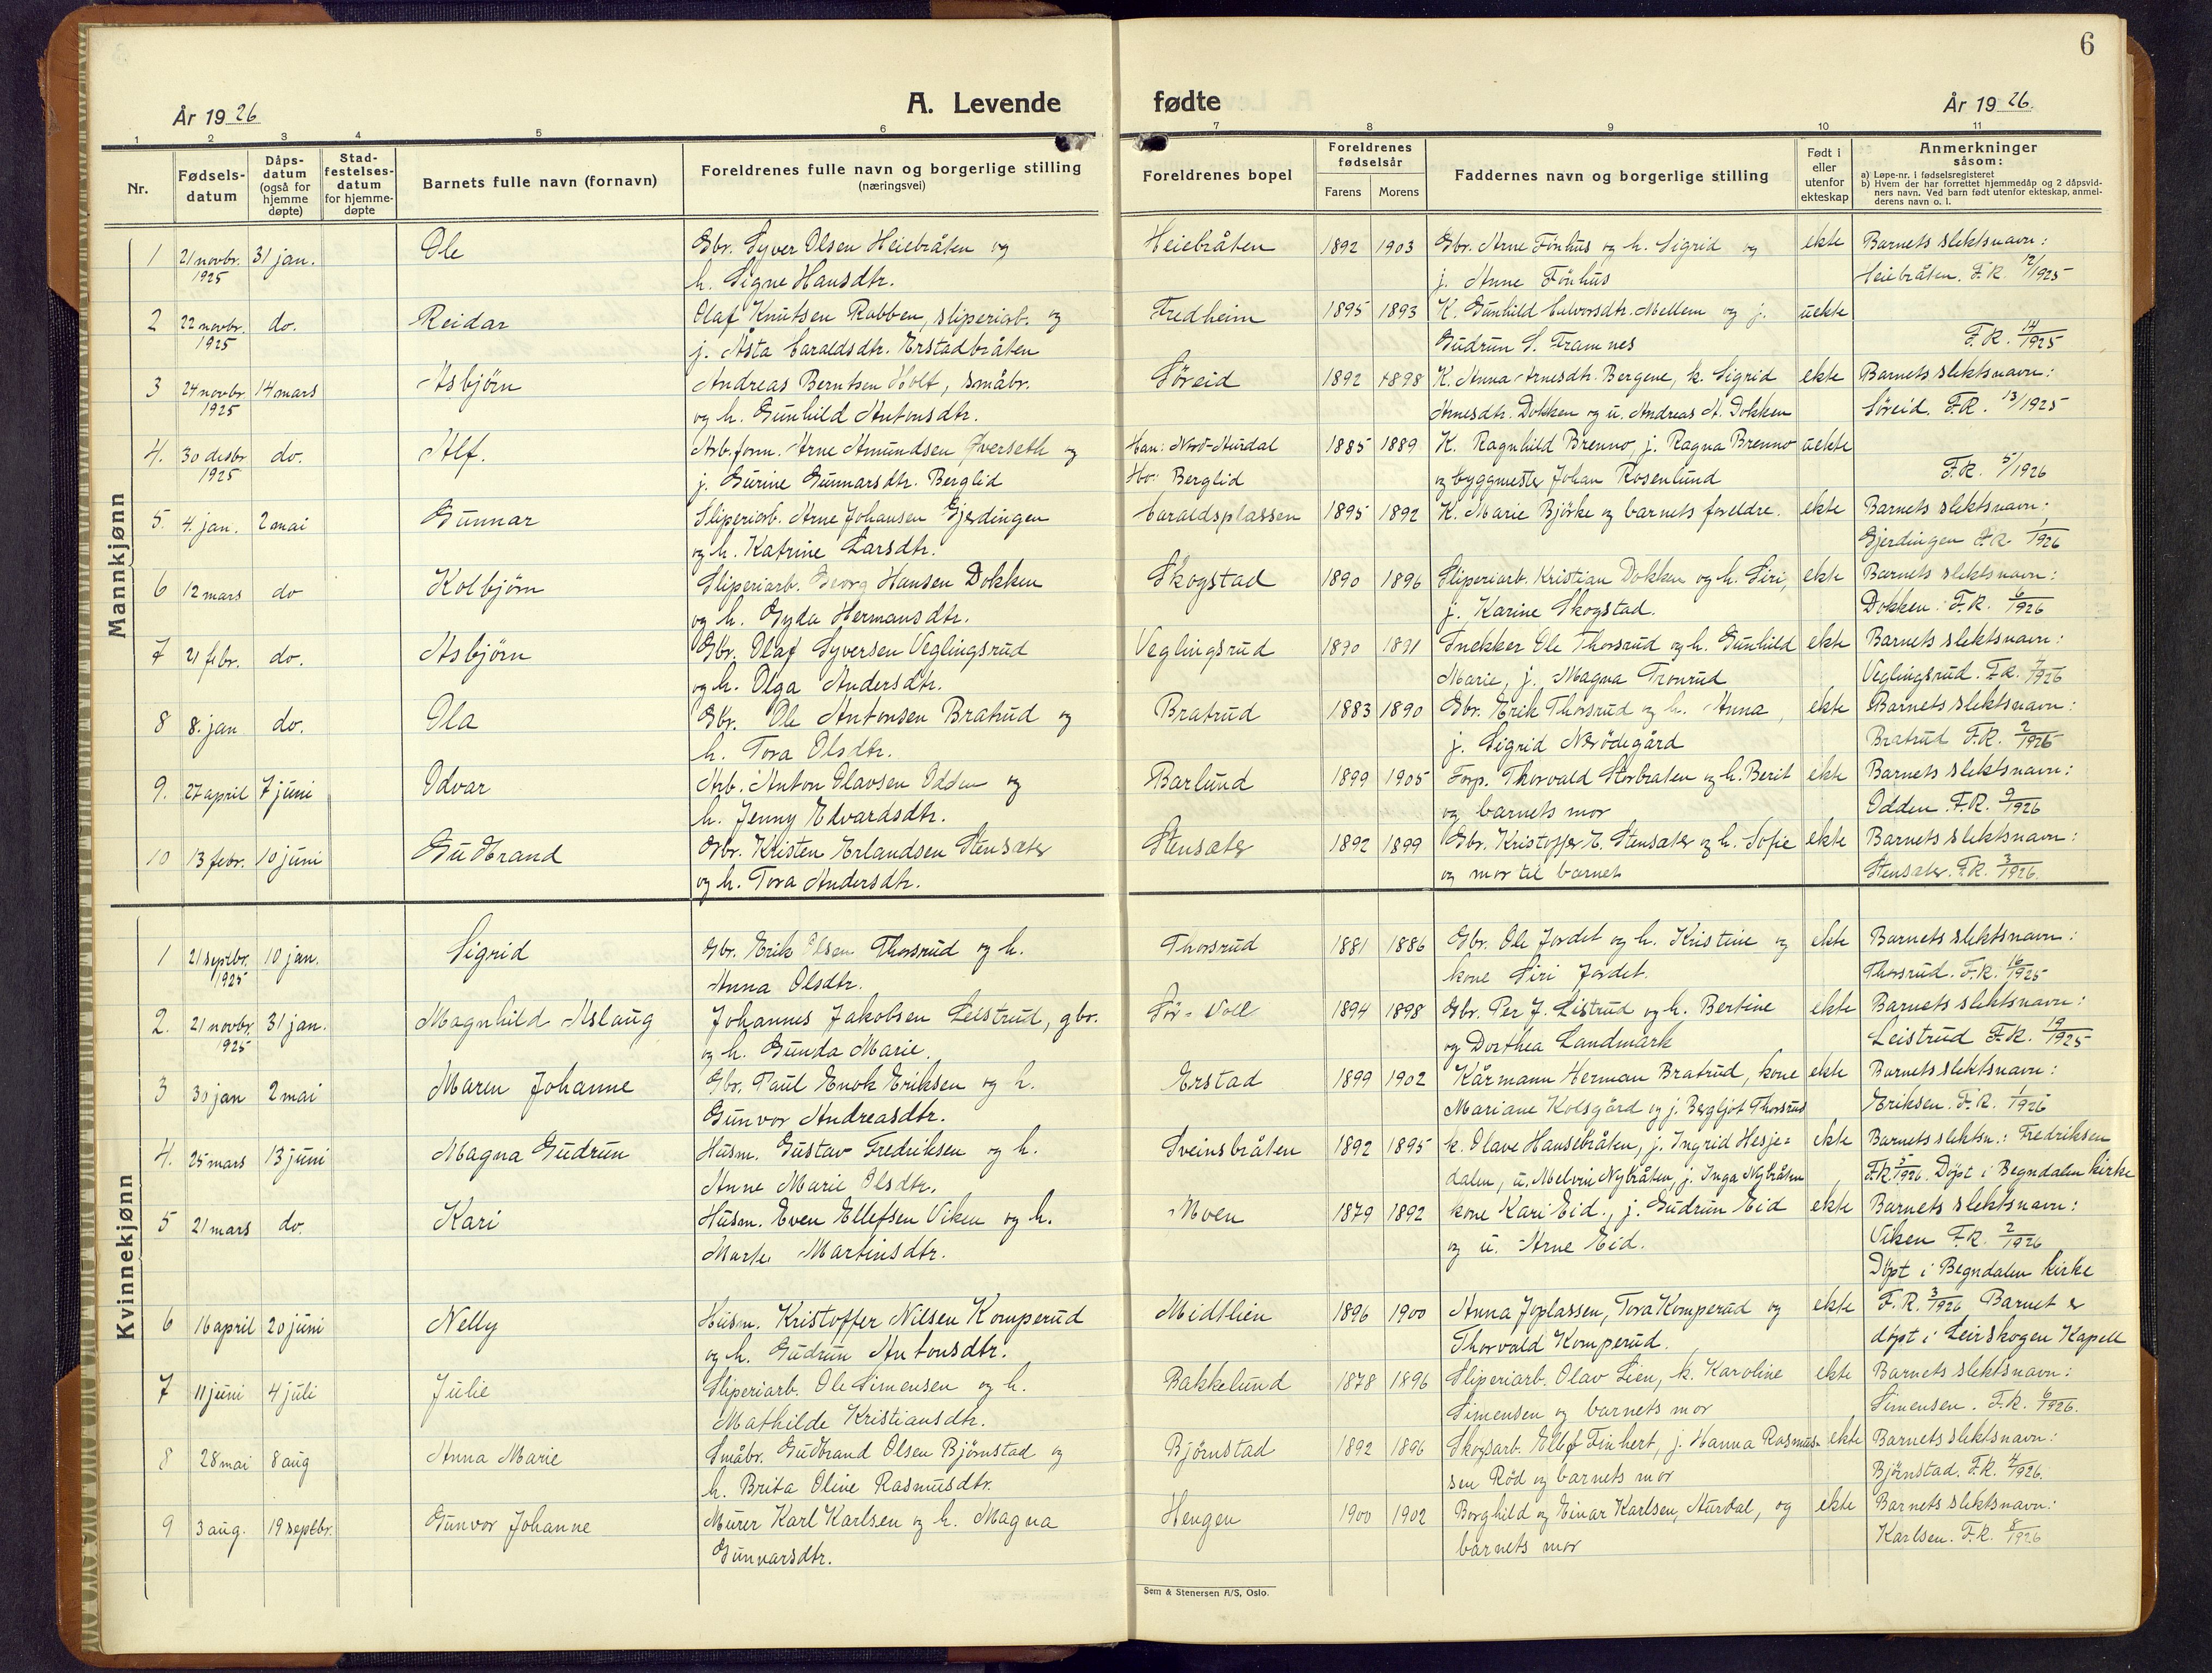 6
År 1926
A. Levende fødte
År 1926.
1 2 3 4 5 6 7 8 9 10 11
Nr.
Fødselsdatum
Dåpsdatum (også for hjemmedøpte)
Stadfestelsesdatum for hjemmedøpte
Barnets fulle navn (fornavn)
Foreldrenes fulle navn og borgerlige stilling (næringsvei)
Foreldrenes bopel
Foreldrenes fødselsår
Farens Morens
Faddernes navn og borgerlige stilling
Født i eller utenfor ekteskap
Anmerkninger såsom:
a) Løpe-nr. i fødselsregisteret
b) Hvem der har forrettet hjemmedåp og 2 dåpsvidners navn. Ved barn født utenfor ekteskap, anmelderens navn o. l.
Mannkjønn
1 21 novbr. 31 jan. Ole Gbr. Syver Olsen Heiebråten og Heiebråten 1892 1903 Gbr. Arne Fönhus og h. Sigrid og ekte Barnets slektsnavn:
1925 h. Signe Hansdtr. j. Anne Fönhus Heiebråten. F.R. 12/1925
2 22 novbr. do. Reidar Olaf Knutsen Robben, sliperiarb. og Fredheim 1895 1893 K. Gunhild Halvorsdtr. Mellem og j. uekte
1925 j. Åsta Haraldsdtr. Erstadbråten Gudrun S. Framnes F.R. 14/1925
3 24 novbr. 14 mars Asbjörn Andreas Berntsen Holt, småbr. Söreid 1892 1898 K. Anna Arnesdtr. Bergene, k. Sigrid ekte Barnets slektsnavn:
1925 og h. Gunhild Antonsdtr. Arnesdtr. Dokken og u. Andreas A. Dokken Söreid. F.R. 13/1925
4. 30 desbr do. Alf. Arb.form. Arne Amundsen Iverseth og Han: Nord-Aurdal 1885 1889 K. Ragnhild Brenno, j. Ragna Brenno uekte
1925 j. Gurine Gunnarsdtr. Berglid Ho: Berglid og byggmester Johan Rosenlund F.R. 5/1926
5. 4. jan. 2 mai Gunnar Sliperiarb. Arne Johansen Gjerdingen Haraldsplassen 1895 1892 K. Marie Björke og barnets foreldre. ekte Barnets slektsnavn:
og h. Katrine Larsdtr. Gjerdingen F.R. 1/1926
6 12 mars do Kolbjörn Sliperiarb. Georg Hansen Dokken Skogstad 1890 1896 Sliperiarb. Kristian Dokken og h. Siri, ekte Barnets slektsnavn:
og h. Gyda Hermansdtr. j. Karine Skogstad. Dokken. F.R. 6/1926
7 21 febr. do. Asbjörn Gbr. Olaf Syversen Veglingsrud Veglingsrud 1890 1891 Snekker Ole Thorsrud og h. Gunhild ekte Barnets slektsnavn:
og h. Olga Andersdtr. Marie, j. Magna Tronrud Veglingsrud. F.R. 7/1926
8 8. jan do. Ola Gbr. Ole Antonsen Bratrud og Bratrud 1883 1890 Gbr. Erik Thorsrud og h. Anna, ekte Barnets slektsnavn:
h. Tora Olsdtr. j. Sigrid Nerödegård Bratrud F.R. 2/1926
9. 27 april 7 juni Odvar Arb. Anton Olavsen Odden og Barlund 1899 1905 Forp. Thorvald Storbraten og h. Berit ekte Barnets slektsnavn:
h. Jenny Edvardsdtr. og barnets mor Odden. F.R. 9/1926
10 13 febr. 10 juni Gudbrand Gbr. Kristen Erlandsen Stensæter Stensæter 1892 1899 Gbr. Kristoffer E. Stensæter og h. Sofie ekte Barnets slektsnavn:
og h. Tora Andersdtr. og mor til barnet Stensæter. F.R. 3/1926.
Kvinnekjønn
1 21 septbr. 10 jan. Sigrid Gbr. Erik Olsen Thorsrud og h. Thorsrud 1881 1886 Gbr. Ole Jordet og h. Kristine og ekte Barnets slektsnavn:
1925 Anna Olsdtr. kone Siri Jordet. Thorsrud. F.R. 16/1925
2. 21 novbr. 31 jan. Magnhild Aslaug Johannes Jakobsen Leistrud, gbr. Sör-Voll 1894 1898 Gbr. Per J. Leistrud og h. Bertine ekte Barnets slektsnavn:
1925 og h. Gunda Marie. og Dorthea Landmark Leistrud F.R. 19/1925
3 30 jan 2 mai Maren Johanne Gbr. Paul Enok Eriksen og h. Erstad 1899 1902 Kårmann Herman Bratrud, kone ekte Barnets slektsnavn:
Gunvor Andreasdtr. Mariane Kolsgård og j. Bergljot Thorsrud Eriksen. F.R. 1/1926
4. 25 mars 13 juni Magna Gudrun Husm. Gustav Fredriksen og h. Sveinsbråten 1892 1895 k. Olave Hansebråten, j. Ingrid Hesje= ekte Barnets slektsn.: Fredriksen
Anne Marie Olsdtr. dalen, u. Melvin Nybråten, j. Inga Nybråten F.R. 5/1926. Döpt i Begndalen kirke
5 21 mars do. Kari Husm. Even Ellefsen Viken og h. Moen 1879 1892 kone Kari Eid., j. Gudrun Eid ekte Barnets slektsnavn:
Marte Martinsdtr. og u. Arne Eid. Viken F.R. 2/1926
Döpt i Begndalen kirke
6 16 april 20 juni Nelly Husm. Kristoffer Nilsen Komperud Midtlien 1896 1900 Anna Joplassen, Tora Komperud og ekte F.R. 3/1926 Barnet er
og h. Gudrun Antonsdtr. Thorvald Komperud. döpt i Leirskogen Kapell
7 11 juni 4 juli Julie Sliperiarb. Ole Simensen og h. Bakkelund 1878 1896 Sliperiarb. Olav Lien, k. Karoline ekte Barnets slektsnavn:
Mathilde Kristiansdtr. Simensen og barnets mor Simensen. F.R. 6/1926.
8 28 mai 8 aug Anna Marie Småbr. Gudbrand Olsen Björnstad og Björnstad 1892 1896 Skogsarb. Ellef Finhert, j. Hanna Rasmus- ekte Barnets slektsnavn:
h. Brita Oline Rasmusdtr. sen Röd og barnets mor Björnstad. F.R. 4/1926.
9 3 aug. 19 septbr. Gunvor Johanne Murer Karl Karlsen og h. Magna Hengen 1900 1902 Borghild og Einar Karlsen, Aurdal, og ekte Barnets slektsnavn:
Gunnarsdtr. barnets mor Karlsen. F.R. 8/1926
Sem & Stenersen A/S, Oslo.